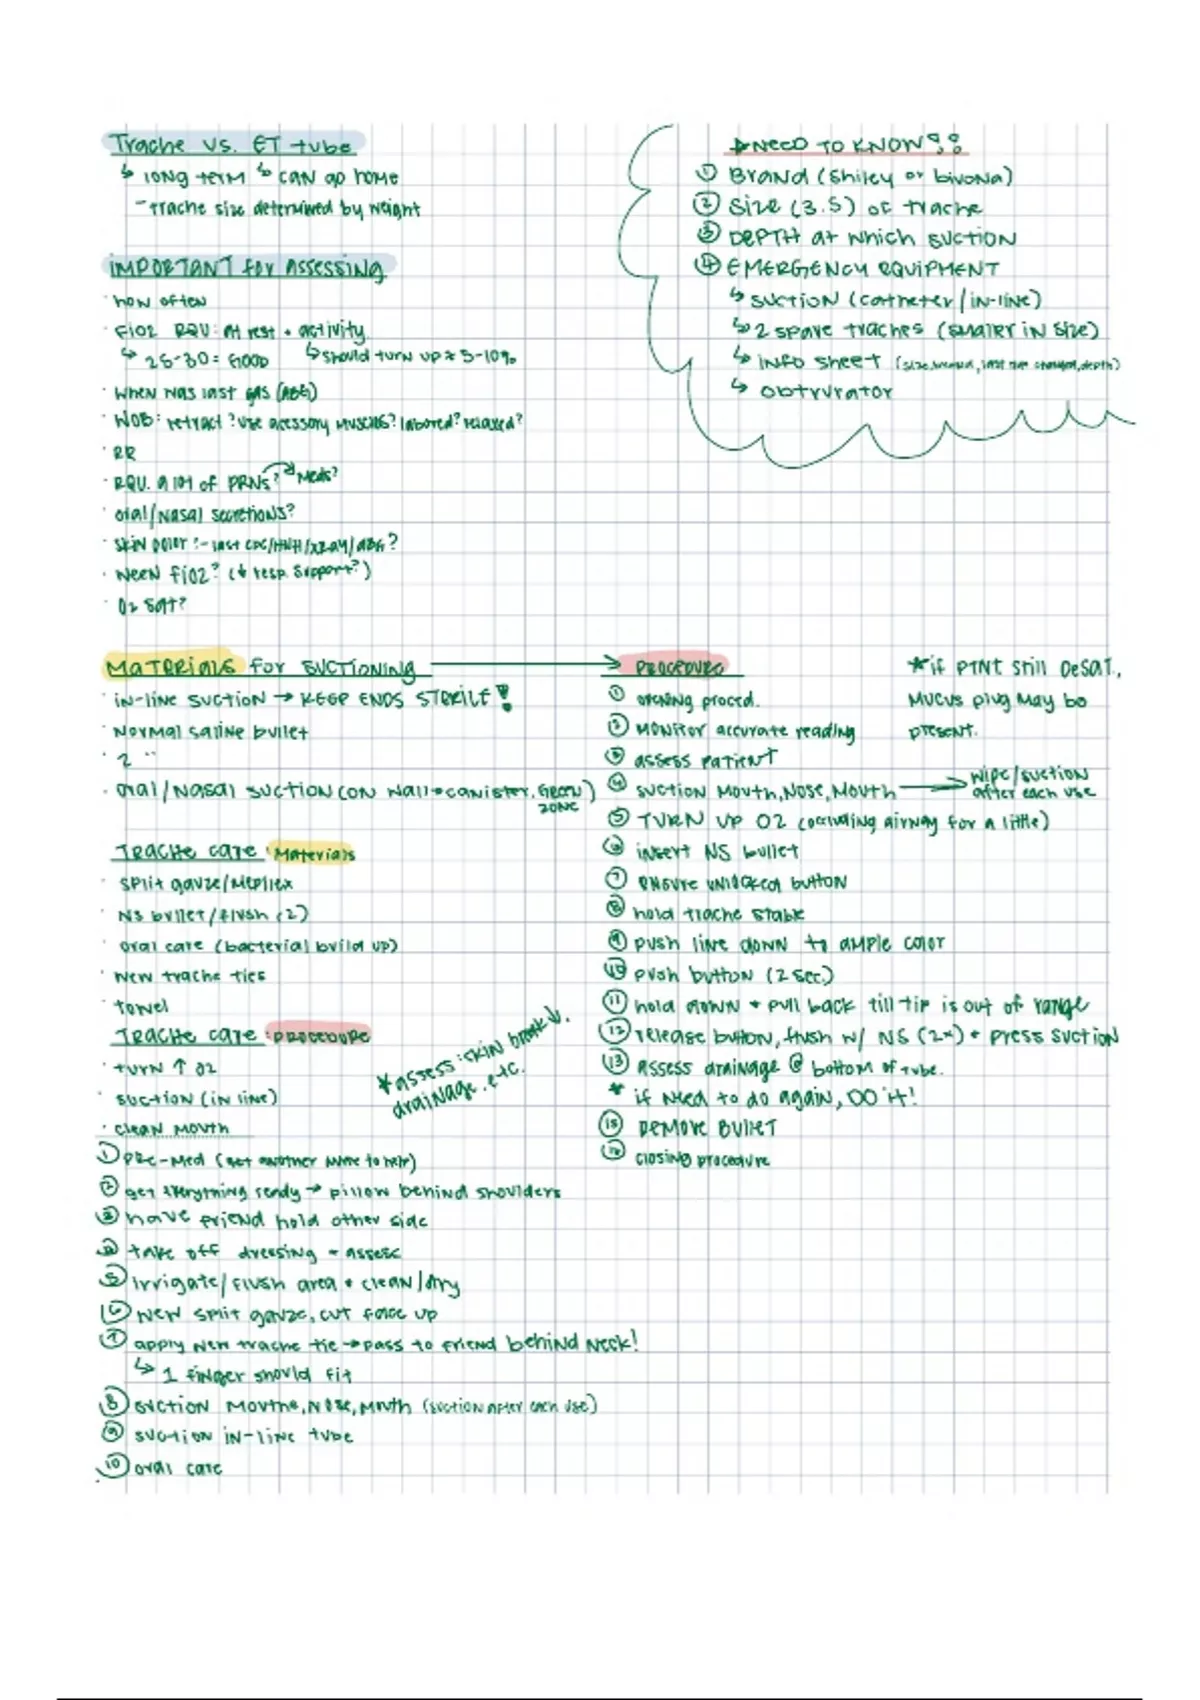 Trache vs. ET tube
↳ long term ↳ can go home
- trache size determined by weight
IMPORTANT for ASSESSING
· how often
· FiO2 REQU: At rest + activity
↳ 25-30 = GOOD ↳ should turn up ≈ 5-10%
· When was last gas (ABG)
· WOB: retract? use acessory muscles? labored? relaxed?
· RR
· REQU. a lot of PRNs? → Meds?
· oral/nasal secretions?
· skin color? - last CBC/H&H/XRAY/ABG?
· Ween FiO2? (↓ resp. support?)
· O2 sat?
★ NEED TO KNOW!!
① Brand (Shiley or bivona)
② Size (3.5) of trache
③ DEPTH at which suction
④ EMERGENCY EQUIPMENT
↳ suction (catheter/in-line)
↳ 2 spare traches (smaller in size)
↳ info sheet (size, brand, last time changed, depth)
↳ obturator
MATERIALS for SUCTIONING →
· in-line suction → KEEP ENDS STERILE!
· Normal saline bullet
· 2 "
· oral/nasal suction (on wall + canister, GREEN ZONE)
PROCEDURE
① opening proced.
② Monitor accurate reading
③ assess patient
④ suction Mouth, Nose, Mouth → wipe/suction after each use
⑤ TURN UP O2 (occluding airway for a little)
⑥ insert NS bullet
⑦ ensure unlocked button
⑧ hold trache stable
⑨ push line down to ample color
⑩ push button (2 sec.)
⑪ hold down + pull back till tip is out of range
⑫ release button, flush w/ NS (2x) + press suction
⑬ assess drainage @ bottom of tube.
* if need to do again, DO it!
⑮ REMOVE BULLET
⑯ closing procedure
★ if PTNT still Desat,
Mucus plug may be
present.
Trache care Materials
· split gauze/Mepilex
· NS bullet/flush (2)
· oral care (bacterial build up)
· new trache ties
· towel
Trache care: PROCEDURE
· turn ↑ O2
· suction (in line)
· clean mouth
* assess: skin break↓,
drainage, etc.
① pre-med (get another nurse to help)
② get everything ready → pillow behind shoulders
③ have friend hold other side
④ take off dressing + assess
⑤ irrigate/flush area + clean/dry
⑥ new split gauze, cut face up
⑦ apply new trache tie → pass to friend behind neck!
↳ 1 finger should fit
⑧ suction Mouthe, Nose, Mouth (suction after each use)
⑨ suction in-line tube
⑩ oral care